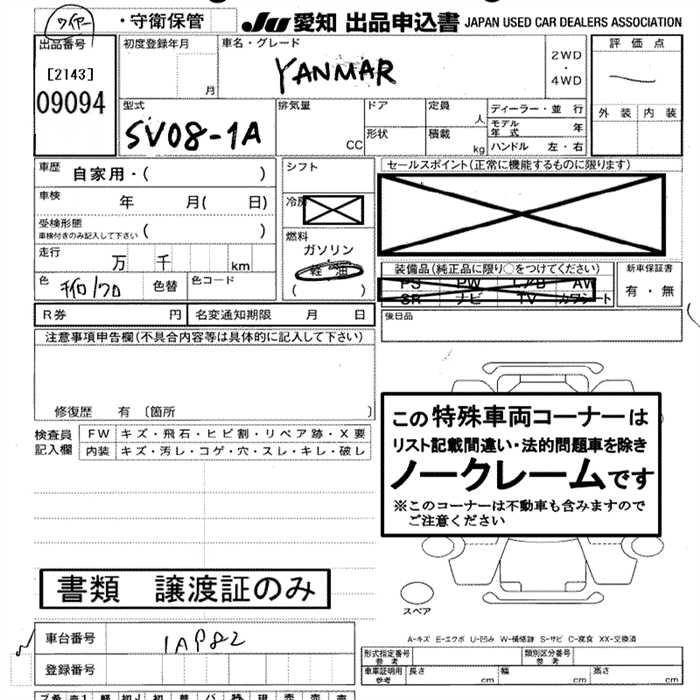 ワイヤー ・守衛保管 JU 愛知 出品申込書 JAPAN USED CAR DEALERS ASSOCIATION
出品番号 初度登録年月 車名・グレード 評価点
[2143] 月 YANMAR 2WD・4WD
09094 外装 内装
型式 排気量 ドア 定員 人 ディーラー・並行
SV08-1A CC 形状 積載 kg モデル年式 年
ハンドル 左・右
車歴 自家用・( ) シフト セールスポイント(正常に機能するものに限ります)
車検 年 月( 日) 冷房
受検形態 車検付きのみ記入して下さい ( ) 燃料
走行 万 千 km ガソリン
軽油
( )
装備品(純正品に限り○をつけてください) 新車保証書
PS PW L/B AW 有・無
SR ナビ TV カワシート
色 色替 色コード
R券 円 名変通知期限 月 日 後日品
注意事項申告欄(不具合内容等は具体的に記入して下さい)
修復歴 有 〔箇所 〕
検査員記入欄 FW キズ・飛石・ヒビ割・リペア跡・X要
内装 キズ・汚レ・コゲ・穴・スレ・キレ・破レ
この特殊車両コーナーは
リスト記載間違い・法的問題車を除き
ノークレームです
※このコーナーは不動車も含みますので
ご注意ください
書類 譲渡証のみ
スペア
A-キズ E-エクボ U-凹み W-補修跡 S-サビ C-腐食 XX-交換済
車台番号 1AP82
登録番号
形式指定番号 参考 類別区分番号 参考
車車証明用 参考 長さ cm 幅 cm 高さ cm